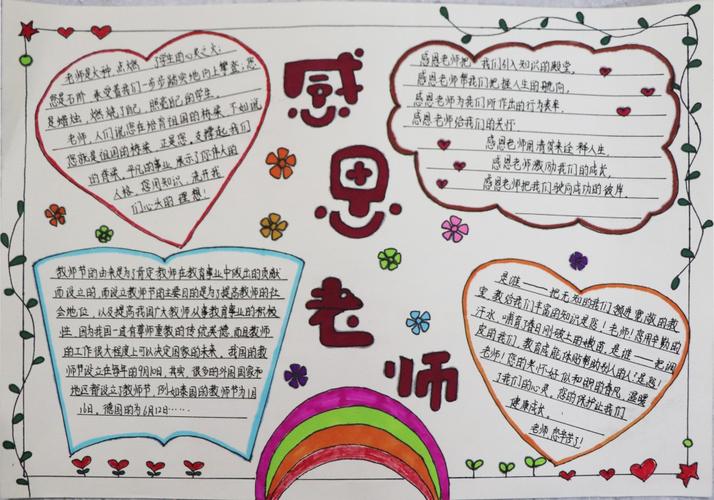 感恩老师
老师是火种,点燃了学生的心灵之火;
您是石阶,承受着我们一步步踏实地向上攀登;您
是蜡烛,燃烧了自己,照亮自己的学生。
老师,人们说您在培育祖国的栋梁,不如说
您就是祖国的栋梁。正是您,支撑起我们
的脊梁。平凡的事业,展示了你伟大的
人格,您用知识,开我
们心头的理想!
感恩老师把我们引入知识的殿堂。
感恩老师帮我们把握人生的航向。
感恩老师为我们所作出的行为表率。
感恩老师给我们的关怀
感恩老师用清贫来诠释人生
感恩老师激励我们的成长。
感恩老师把我们驶向成功的彼岸。
教师节的由来是为了肯定教师在教育事业中做出的贡献
而设立的,而设立教师节的主要目的是为了提高教师的社
会地位,以及提高我国广大教师从事教育事业的积极
性,因为我国一直有尊师重教的传统美德,而且教师
的工作很大程度上可以决定国家的未来。我国的教
师节设立在每年的9月10日,其实,很多的外国国家和
地区都设立了教师节,例如泰国的教师节为1月
16日,德国的为6月12日……
是谁——把无知的我们领进宽敞的教
室,教给我们丰富的知识是您!老师!您用辛勤的
汗水,哺育了春日刚破土的嫩苗。是谁——把调
皮的我们,教育成能体贴帮助别人的人?是您!
老师!您的关怀好似和煦的春风,温暖
了我们的心灵,您的保护让我们
健康成长。
老师,您辛苦了!